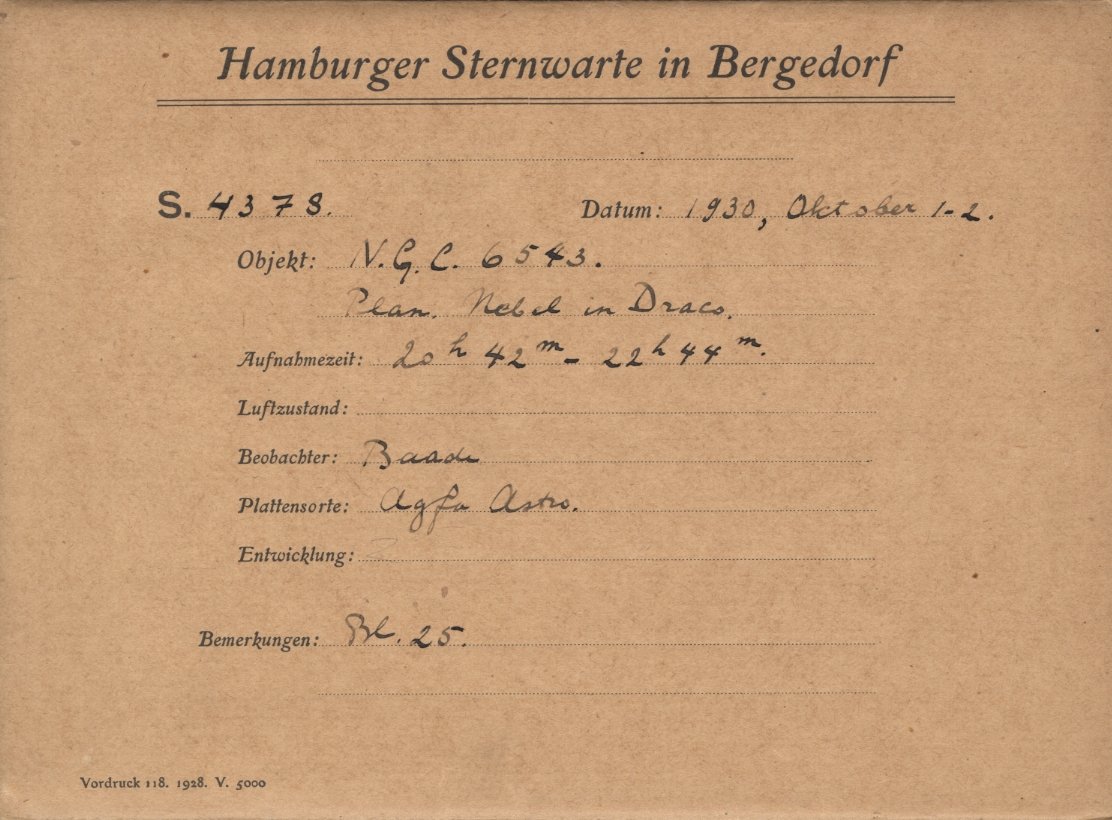 Hamburger Sternwarte in Bergedorf
S. 4378. Datum: 1930, Oktober 1-2.
Objekt: N.G.C. 6543.
Plan. Nebel in Draco.
Aufnahmezeit: 20h 42m - 22h 44m.
Luftzustand:
Beobachter: Baade
Plattensorte: Agfa Astro.
Entwicklung:
Bemerkungen: Bl. 25.
Vordruck 118. 1928. V. 5000